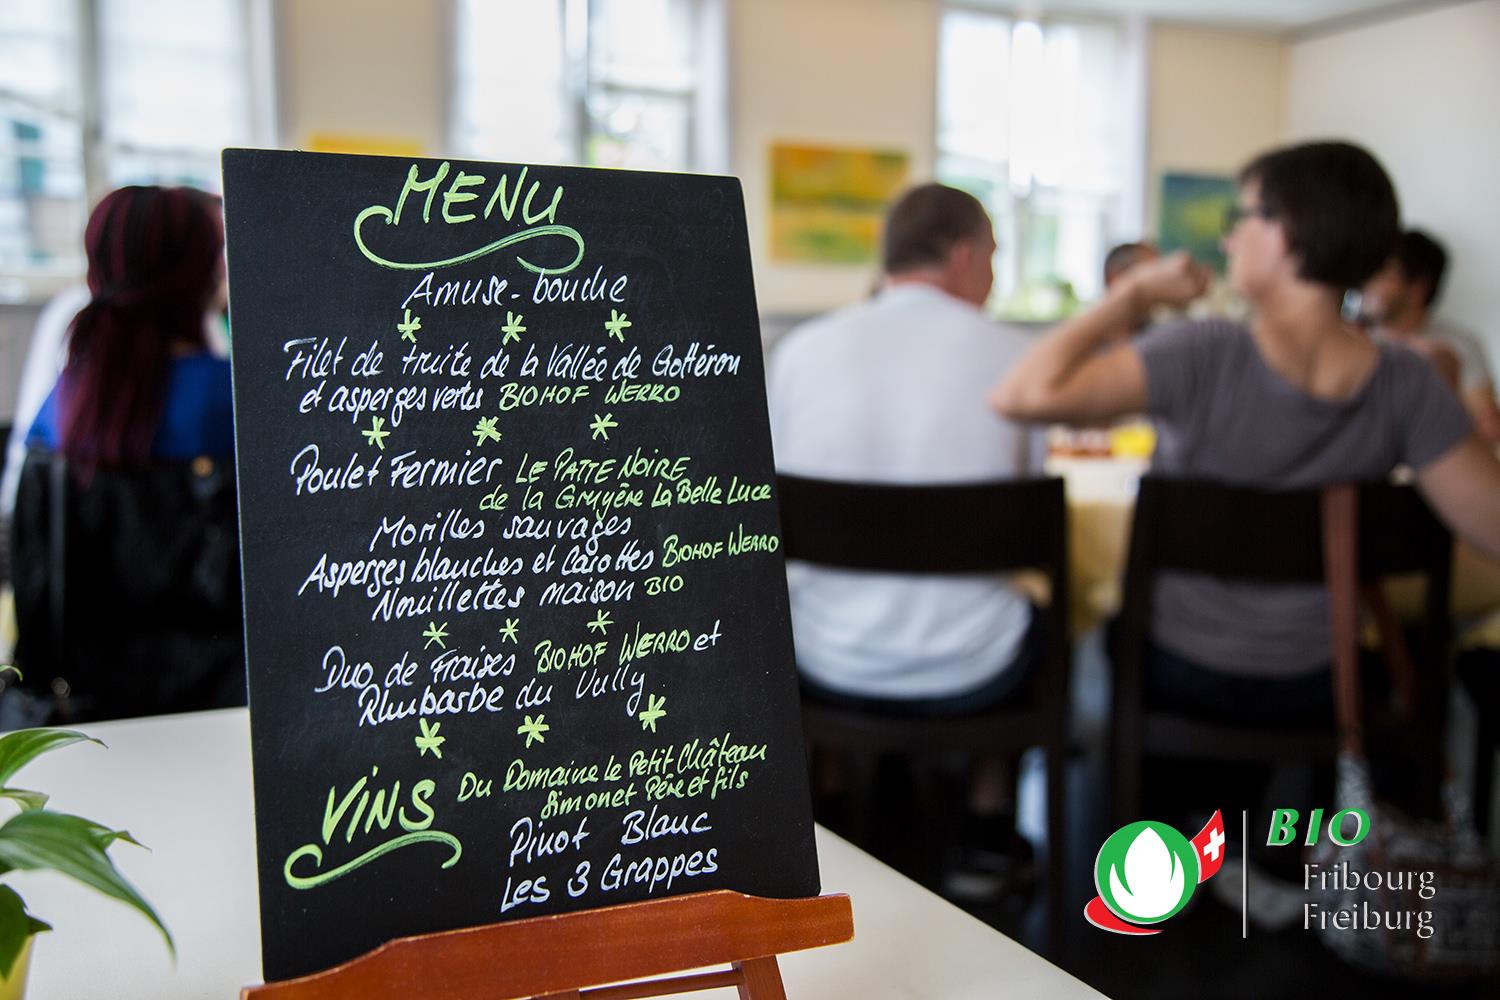 MENU
Amuse-bouche
* * *
Filet de truite de la Vallée de Gottéron
et asperges vertes BIOHOF WERRO
* * *
Poulet Fermier LE PATTE NOIRE
de la Gruyère La Belle Luce
Morilles sauvages
Asperges blanches et Carottes BIOHOF WERRO
Nouillettes maison BIO
* * *
Duo de Fraises BIOHOF WERRO et
Rhubarbe du Vully
* * *
VINS Du Domaine le Petit Château
Simonet Père et fils
Pinot Blanc
Les 3 Grappes
BIO
Fribourg
Freiburg